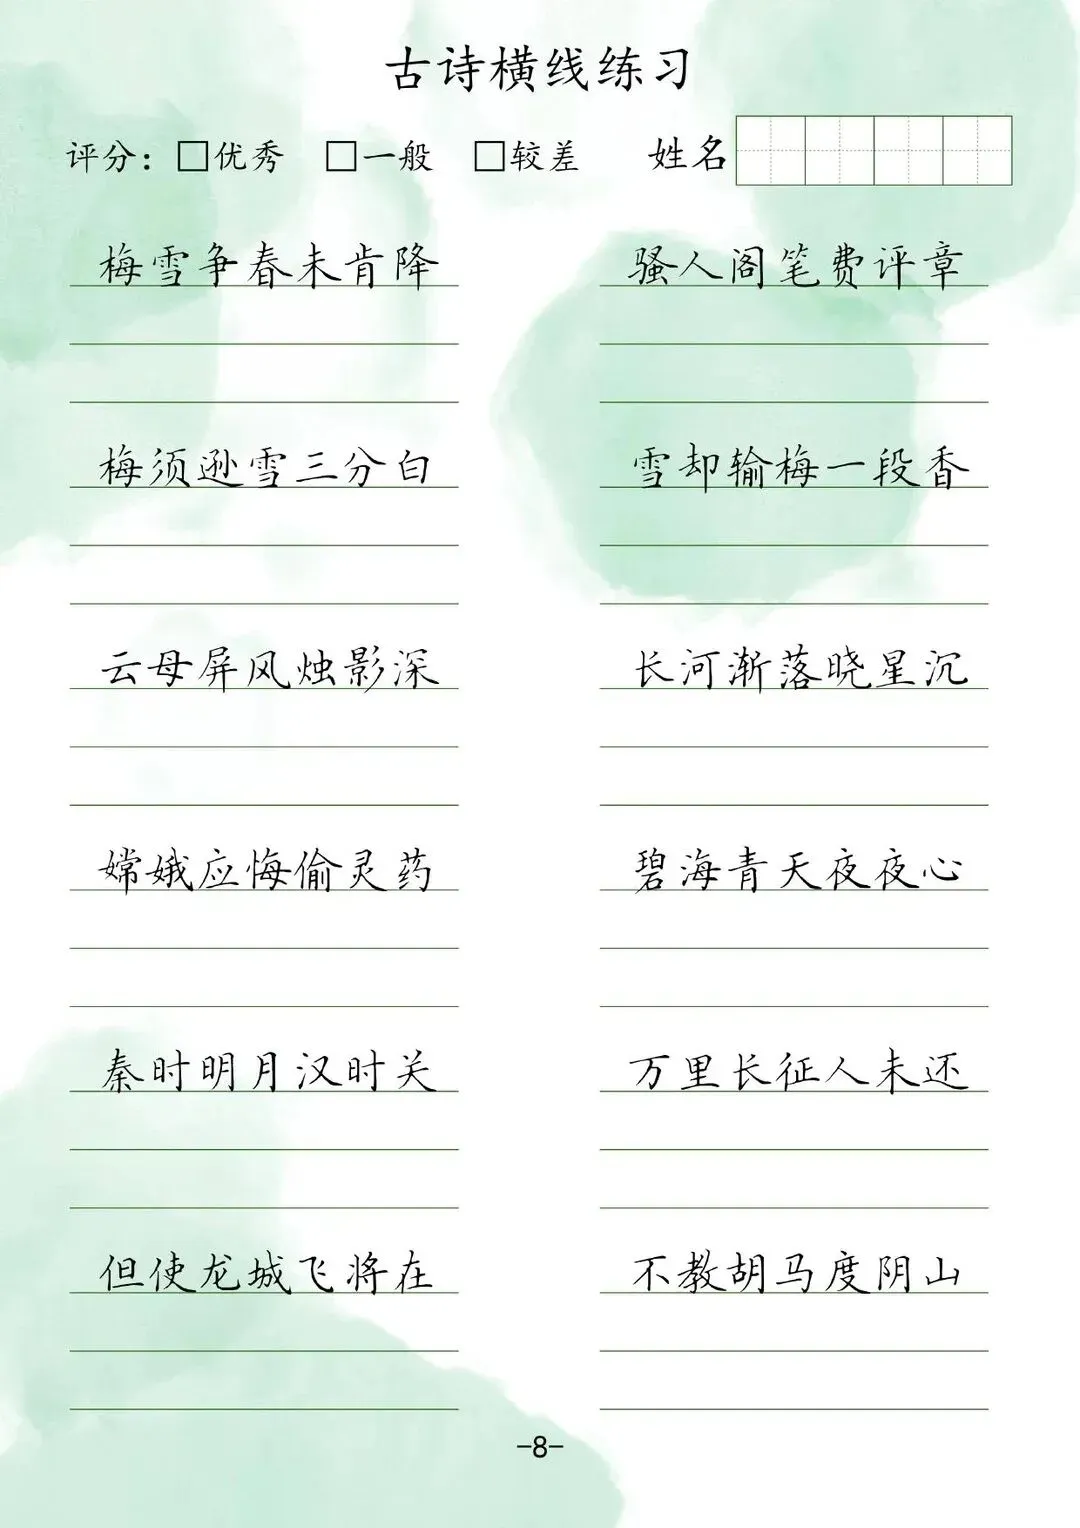 古诗横线练习
评分：□优秀 □一般 □较差 姓名
梅雪争春未肯降 骚人阁笔费评章
梅须逊雪三分白 雪却输梅一段香
云母屏风烛影深 长河渐落晓星沉
嫦娥应悔偷灵药 碧海青天夜夜心
秦时明月汉时关 万里长征人未还
但使龙城飞将在 不教胡马度阴山
-8-